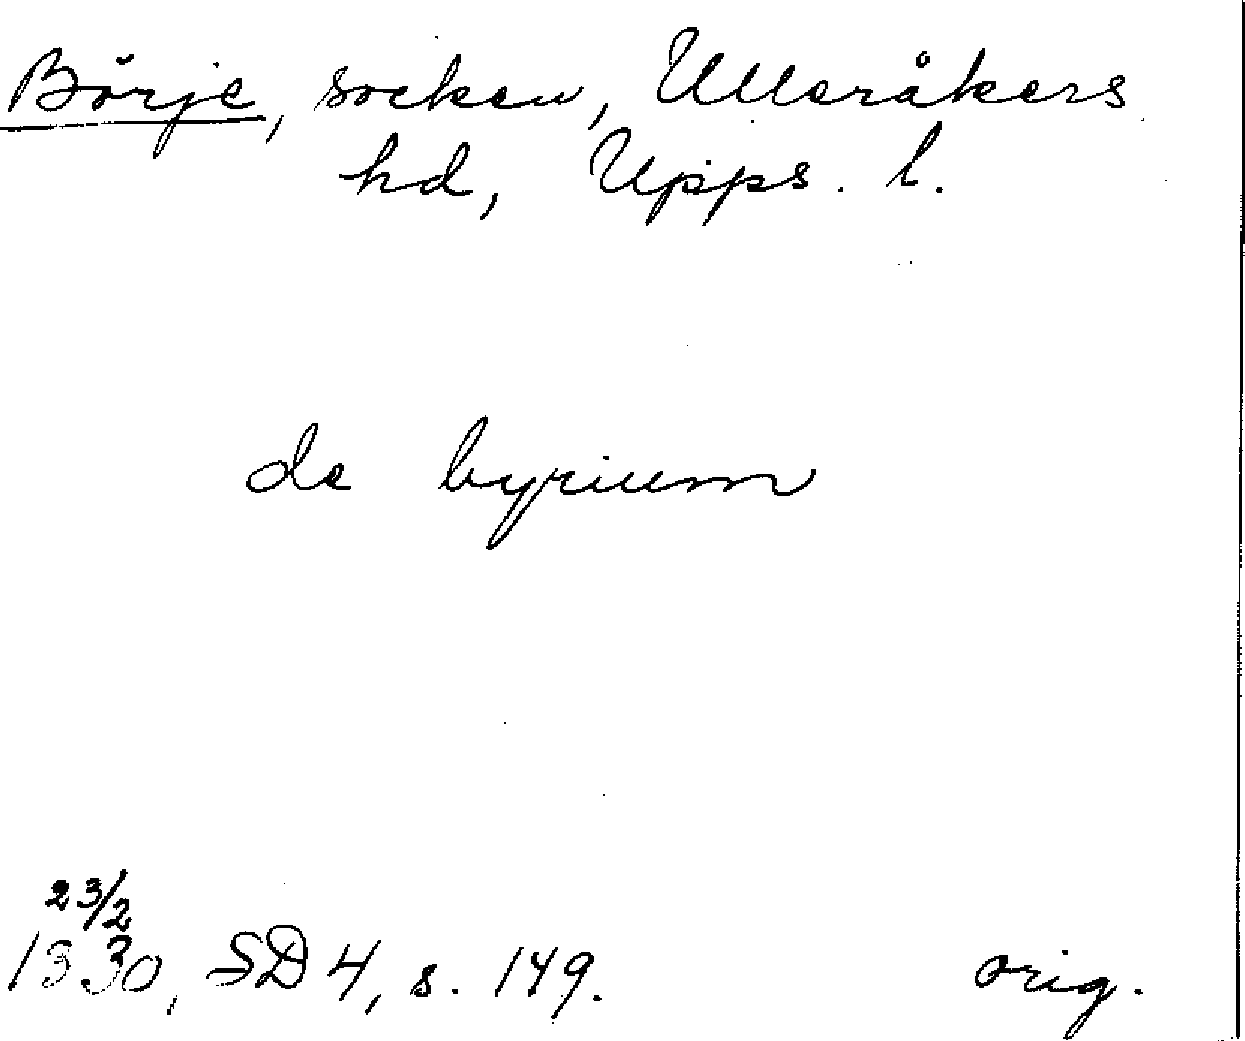 Börje, socken, Ulleråkers
hd, Upps. l.
de byrium
23/2
1330, SD 4, s. 149.
orig.